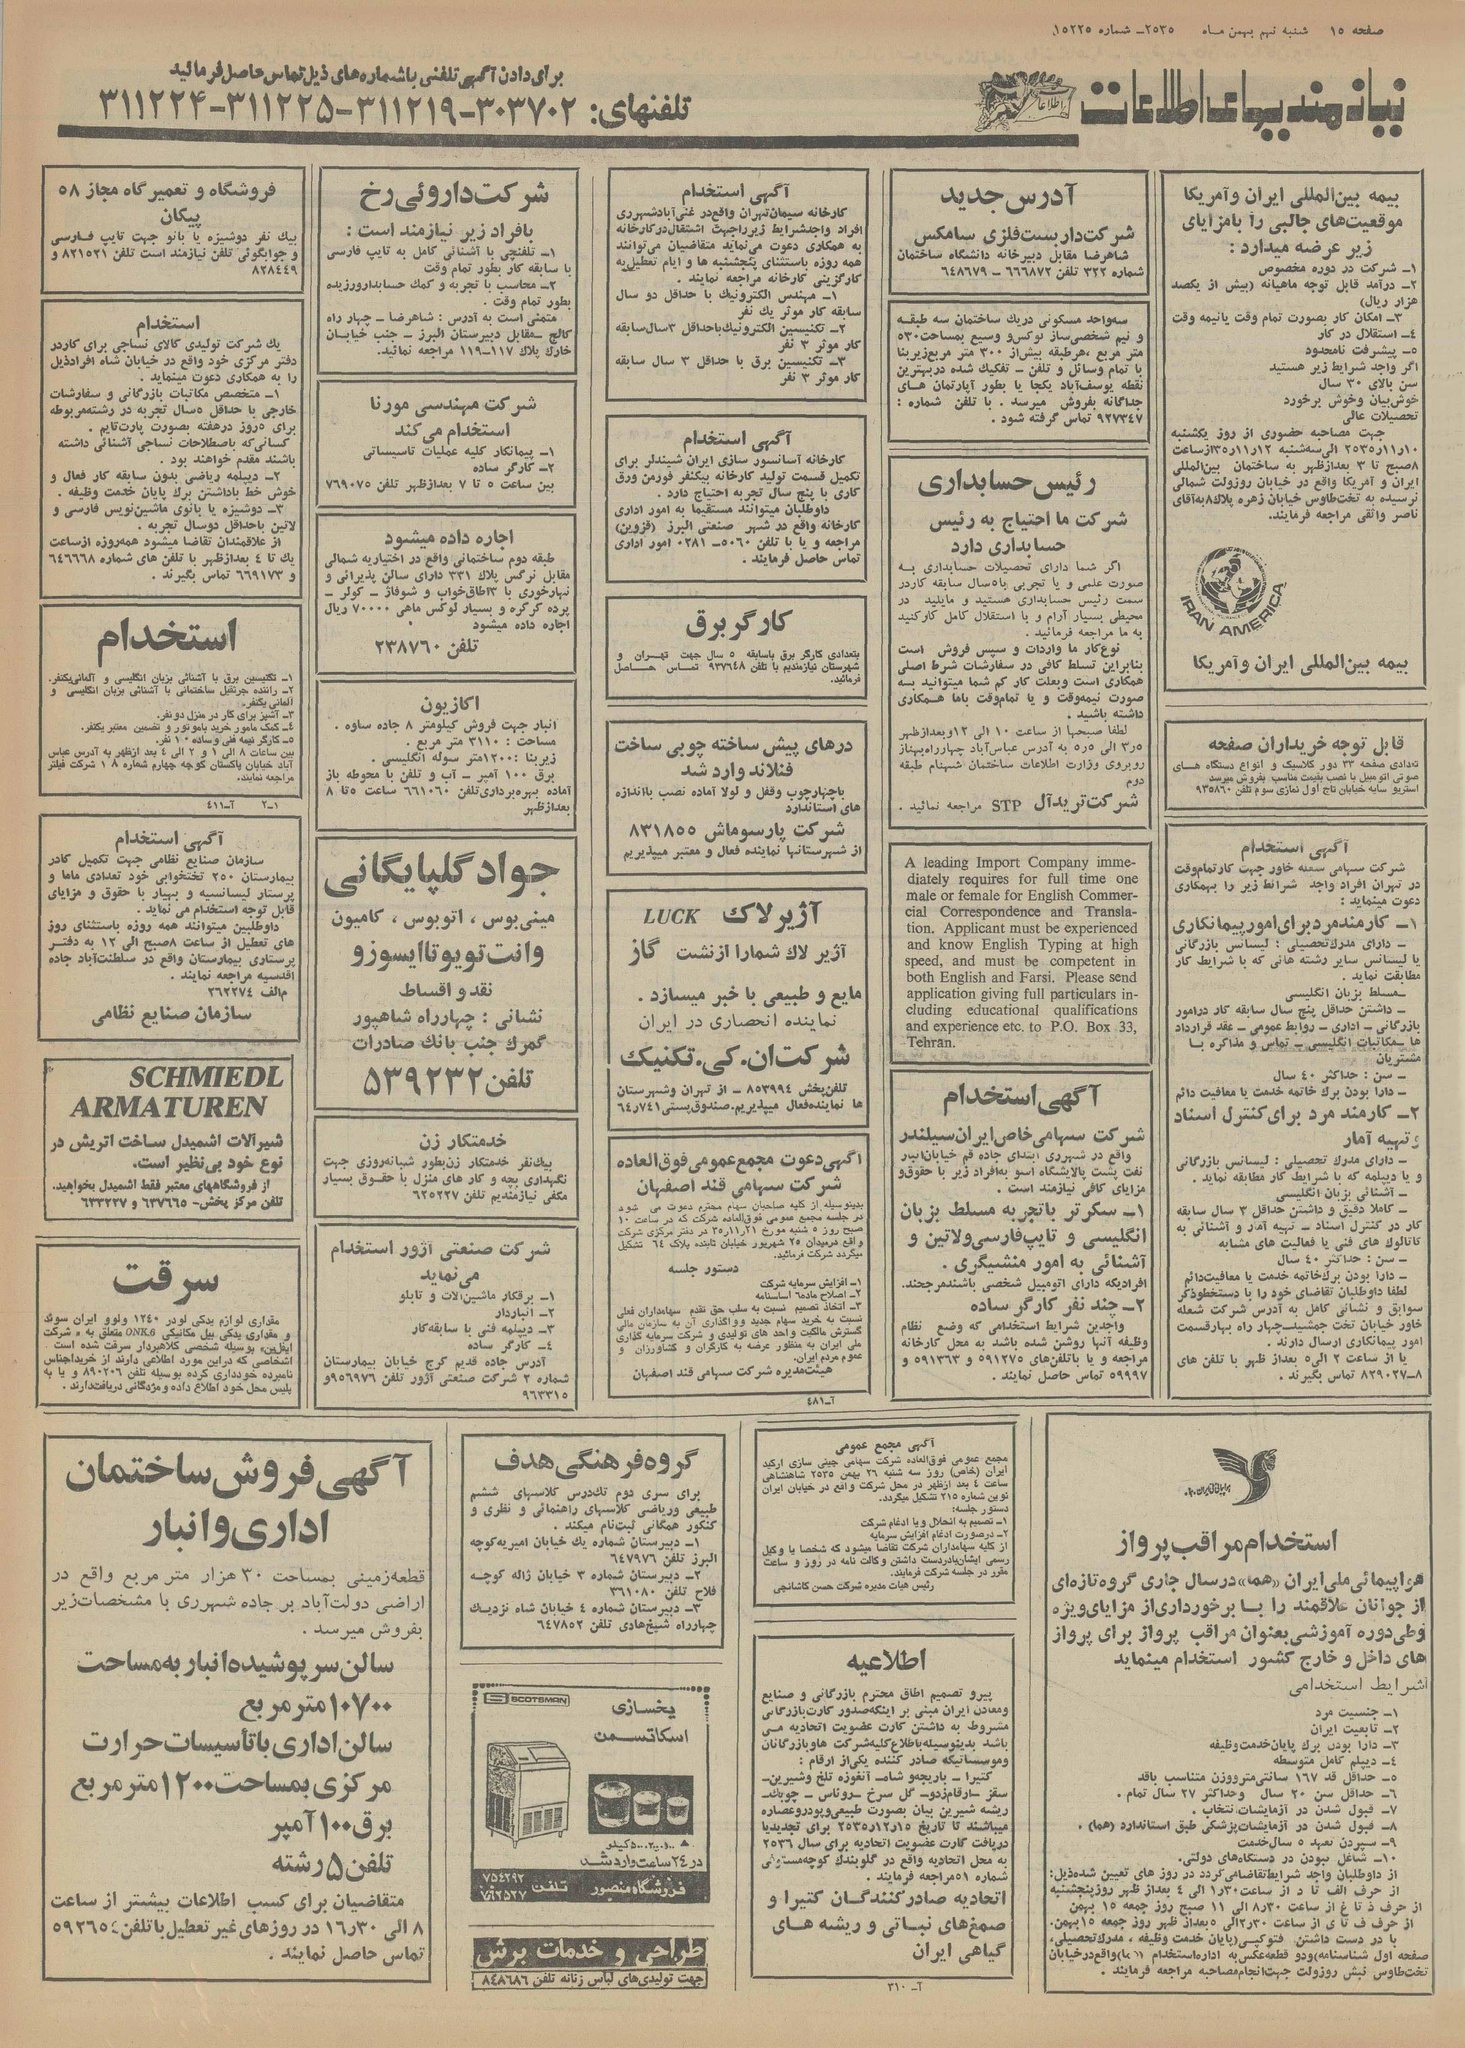 صفحه ۱۵ شنبه نهم بهمن ماه ۲۵۳۵ـ شماره ۱۵۲۲۵
نیازمندیهای اطلاعات
برای دادن آگهی تلفنی با شماره‌های ذیل تماس حاصل فرمائید
تلفنهای: ۳۰۳۷۰۲-۳۱۱۲۱۹-۳۱۱۲۲۵-۳۱۱۲۲۴
بیمه بین‌المللی ایران وآمریکا
موقعیت‌های جالبی را بامزایای
زیر عرضه میدارد :
۱ـ شرکت در دوره مخصوص
۲ـ درآمد قابل توجه ماهیانه (بیش از یکصد
هزار ریال)
۳ـ امکان کار بصورت تمام وقت یانیمه وقت
۴ـ استقلال در کار
۵ـ پیشرفت نامحدود
اگر واجد شرایط زیر هستید
سن بالای ۳۰ سال
خوش‌بیان وخوش برخورد
تحصیلات عالی
جهت مصاحبه حضوری از روز یکشنبه
۱۰ر۱۱ر۲۵۳۵ الی سه‌شنبه ۱۲ر۱۱ر۳۵ازساعت
۸صبح تا ۳ بعدازظهر به ساختمان بین‌المللی
ایران و آمریکا واقع در خیابان روزولت شمالی
نرسیده به تخت‌طاوس خیابان زهره پلاک۸به‌آقای
ناصر واثقی مراجعه فرمایند.
IRAN AMERICA
بیمه بین‌المللی ایران وآمریکا
قابل توجه خریداران صفحه
تعدادی صفحه ۳۳ دور کلاسیک و انواع دستگاه های
صوتی اتومبیل با نصب بقیمت مناسب بفروش میرسد
استریو سایه خیابان تاج اول نمازی سوم تلفن ۹۳۵۸۶۰
آگهی استخدام
شرکت سهامی شعله خاور جهت کارتمام‌وقت
در تهران افراد واجد شرائط زیر را بهمکاری
دعوت مینماید :
۱ـ کارمندمرد برای امورپیمانکاری
ـ دارای مدرك‌تحصیلی : لیسانس بازرگانی
یا لیسانس سایر رشته هائی که با شرایط کار
مطابقت نماید .
ـمسلط بزبان انگلیسی
ـ داشتن حداقل پنج سال سابقه کار درامور
بازرگانی ـ اداری ـ روابط عمومی ـ عقد قرارداد
ها ـمکاتبات انگلیسی ـ تماس و مذاکره با
مشتریان
ـ سن : حداکثر ۴۰ سال
ـ دارا بودن برك خاتمه خدمت یا معافیت دائم
۲ـ کارمند مرد برای کنترل اسناد
وتهیه آمار
ـ دارای مدرك تحصیلی : لیسانس بازرگانی
و یا دیپلمه که با شرایط کار مطابقه نماید .
ـ آشنائی بزبان انگلیسی
ـ کاملا دقیق و داشتن حداقل ۳ سال سابقه
کار در کنترل اسناد ـ تهیه آمار و آشنائی به
کاتالوک های فنی یا فعالیت های مشابه
ـ سن : حداکثر ۴۰ سال
ـ دارا بودن برك‌خاتمه خدمت یا معافیت‌دائم
لطفا داوطلبان تقاضای خود را با دستخط‌وذکر
سوابق و نشانی کامل به آدرس شرکت شعله
خاور خیابان تخت جمشیدـچهار راه بهارقسمت
امور پیمانکاری ارسال دارند .
یا از ساعت ۲ الی۵ بعداز ظهر با تلفن های
۸ـ۸۲۹۰۲۷ تماس بگیرند .
آدرس جدید
شرکت‌داربست‌فلزی سامکس
شاهرضا مقابل دبیرخانه دانشگاه ساختمان
شماره ۳۲۲ تلفن ۶۶۶۸۷۲ ـ ۶۴۸۶۷۹
سه‌واحد مسکونی دریك ساختمان سه طبقه
و نیم شخصی‌ساز لوکس‌و وسیع بمساحت۵۳۰
متر مربع ،هرطبقه بیش‌از ۳۰۰ متر مربع‌زیربنا
با تمام وسائل و تلفن ـ تفکیك شده دربهترین
نقطه یوسف‌آباد یکجا یا بطور آپارتمان های
جداگانه بفروش میرسد . با تلفن شماره :
۹۲۷۳۴۷ تماس گرفته شود .
رئیس حسابداری
شرکت ما احتیاج به رئیس
حسابداری دارد
اگر شما دارای تحصیلات حسابداری به
صورت علمی و یا تجربی با۵سال سابقه کاردر
سمت رئیس حسابداری هستید و مایلید در
محیطی بسیار آرام و با استقلال کامل کارکنید
به ما مراجعه فرمائید .
نوع‌کار ما واردات و سپس فروش است
بنابراین تسلط کافی در سفارشات شرط اصلی
همکاری است وبعلت کار کم شما میتوانید به
صورت نیمه‌وقت و یا تمام‌وقت باما همکاری
داشته باشید .
لطفا صبحها از ساعت ۱۰ الی ۱۲وبعدازظهر
۳ر۵ الی ۵ر۵ به آدرس عباس‌آباد چهارراه‌مهناز
روبروی وزارت اطلاعات ساختمان شهنام طبقه
دوم
شرکت‌تریدآل STP مراجعه نمائید .
A leading Import Company imme-
diately requires for full time one
male or female for English Commer-
cial Correspondence and Transla-
tion. Applicant must be experienced
and know English Typing at high
speed, and must be competent in
both English and Farsi. Please send
application giving full particulars in-
cluding educational qualifications
and experience etc. to P.O. Box 33,
Tehran.
آگهی استخدام
شرکت سهامی خاص ایران‌سیلندر
واقع در شهرری ابتدای جاده قم خیابان‌انبار
نفت پشت پالایشگاه اسو به‌افراد زیر با حقوق‌و
مزایای کافی نیازمند است .
۱ـ سکرتر باتجربه مسلط بزبان
انگلیسی و تایپ‌فارسی‌ولاتین و
آشنائی به امور منشیگری .
افرادیکه دارای اتومبیل شخصی باشندمرجحند.
۲ـ چند نفر کارگر ساده
واجدین شرایط استخدامی که وضع نظام
وظیفه آنها روشن شده باشد به محل کارخانه
مراجعه و یا باتلفن‌های ۵۹۱۲۷۵ و ۵۹۱۳۶۳ و
۵۹۹۹۷ تماس حاصل نمایند .
آگهی استخدام
کارخانه سیمان‌تهران واقع‌در غنی‌آبادشهرری
افراد واجدشرایط زیرراجهت اشتغال‌درکارخانه
به همکاری دعوت می‌نماید متقاضیان می‌توانند
همه روزه باستثنای پنجشنبه ها و ایام تعطیل‌به
کارگزینی کارخانه مراجعه نمایند .
۱ـ مهندس الکترونیك با حداقل دو سال
سابقه کار موثر یك نفر
۲ـ تکنیسین الکترونیك‌باحداقل ۳سال‌سابقه
کار موثر ۳ نفر
۳ـ تکنیسین برق با حداقل ۳ سال سابقه
کار موثر ۳ نفر
آگهی استخدام
کارخانه آسانسور سازی ایران شیندلر برای
تکمیل قسمت تولید کارخانه بیکنفر فورمن ورق
کاری با پنج سال تجربه احتیاج دارد .
داوطلبان میتوانند مستقیما به امور اداری
کارخانه واقع در شهر صنعتی البرز (قزوین)
مراجعه و یا با تلفن ۵۰۶۰ـ ۰۲۸۱ امور اداری
تماس حاصل فرمایند .
کارگر برق
بتعدادی کارگر برق باسابقه ۵ سال جهت تهران و
شهرستان نیازمندیم با تلفن ۹۳۷۶۴۸ تماس حاصل
فرمائید.
درهای پیش ساخته چوبی ساخت
فنلاند وارد شد
باچهارچوب وقفل و لولا آماده نصب بااندازه
های استاندارد
شرکت پارسوماش ۸۳۱۸۵۵
از شهرستانها نماینده فعال و معتبر میپذیریم
آژیر لاك LUCK
آژیر لاك شمارا ازنشت گاز
مایع و طبیعی با خبر میسازد .
نماینده انحصاری در ایران
شرکت‌ان.کی.تکنیک
تلفن‌پخش ۸۵۳۹۹۴ ـ از تهران وشهرستان
ها نماینده‌فعال میپذیریم.صندوق‌پستی۷۴۱ر۶۴
آگهی دعوت مجمع‌عمومی‌فوق‌العاده
شرکت سهامی قند اصفهان
بدینوسیله از کلیه صاحبان سهام محترم دعوت می شود
در جلسه مجمع عمومی فوق‌العاده شرکت که در ساعت ۱۰
صبح روز ۵ شنبه مورخ ۲۱ر۱۱ر۳۵ در دفتر مرکزی شرکت
واقع درمیدان ۲۵ شهریور خیابان تابنده پلاک ۶۴ تشکیل
میگردد شرکت فرمائید.
دستور جلسه
۱ـ افزایش سرمایه شرکت
۲ـ اصلاح ماده۶ اساسنامه
۳ـ اتخاذ تصمیم نسبت به سلب حق تقدم سهامداران فعلی
نسبت به خرید سهام جدید وواگذاری آن به سازمان مالی
گسترش مالکیت واحد های تولیدی و شرکت سرمایه گذاری
ملی ایران به منظور عرضه به کارگران و کشاورزان و
عموم مردم ایران.
هیئت‌مدیره شرکت سهامی قند اصفهان
آـ۴۸۱
شرکت داروئی رخ
بافراد زیر نیازمند است :
۱ـ تلفنچی با آشنائی کامل به تایپ فارسی
با سابقه کار بطور تمام وقت
۲ـ محاسب با تجربه و کمك حسابدارورزیده
بطور تمام وقت .
متمنی است به آدرس : شاهرضا ـ چهار راه
کالج ـمقابل دبیرستان البرز ـ جنب خیابان
خارك پلاك ۱۱۷ـ۱۱۹ مراجعه نمائید.
شرکت مهندسی مورنا
استخدام می‌کند
۱ـ پیمانکار کلیه عملیات تاسیساتی
۲ـ کارگر ساده
بین ساعت ۵ تا ۷ بعدازظهر تلفن ۷۶۹۰۷۵
اجاره داده میشود
طبقه دوم ساختمانی واقع در اختیاریه شمالی
مقابل نرگس پلاك ۳۳۱ دارای سالن پذیرائی و
نهارخوری با ۳اطاق‌خواب و شوفاژ ـ کولر ـ
پرده کرکره و بسیار لوکس ماهی ۷۰۰۰۰ ریال
اجاره داده میشود
تلفن ۲۳۸۷۶۰
اکازیون
انبار جهت فروش کیلومتر ۸ جاده ساوه .
مساحت : ۳۱۱۰ متر مربع .
زیربنا :۱۲۰۰متر سوله انگلیسی .
برق ۱۰۰ آمپر ـ آب و تلفن با محوطه باز
آماده بهره‌برداری‌تلفن ۶۶۱۰۶۰ ساعت ۵تا ۸
بعدازظهر
جوادگلپایگانی
مینی‌بوس ، اتوبوس ، کامیون
وانت تویوتاایسوزو
نقد و اقساط
نشانی : چهارراه شاهپور
گمرک جنب بانك صادرات
تلفن ۵۳۹۲۳۲
خدمتکار زن
بیك‌نفر خدمتکار زن‌بطور شبانه‌روزی جهت
نگهداری بچه و کار های منزل با حقوق بسیار
مکفی نیازمندیم تلفن ۶۲۵۲۲۷
شرکت صنعتی آژور استخدام
می‌نماید
۱ـ برقکار ماشین‌آلات و تابلو
۲ـ انباردار
۳ـ دیپلمه فنی با سابقه‌کار
۴ـ کارگر ساده
آدرس جاده قدیم کرج خیابان بیمارستان
شماره ۲ شرکت صنعتی آژور تلفن ۹۵۶۹۷۶و
۹۶۳۳۱۵
فروشگاه و تعمیر گاه مجاز ۵۸
پیکان
بیك نفر دوشیزه یا بانو جهت تایپ فارسی
و جوابگوئی تلفن نیازمند است تلفن ۸۲۱۵۲۱ و
۸۲۸۴۴۹
استخدام
یك شرکت تولیدی کالای نساجی برای کاردر
دفتر مرکزی خود واقع در خیابان شاه افرادذیل
را به همکاری دعوت مینماید .
۱ـ متخصص مکاتبات بازرگانی و سفارشات
خارجی با حداقل ۵سال تجربه در رشته‌مربوطه
برای ۵روز درهفته بصورت پارت‌تایم .
کسانی‌که باصطلاحات نساجی آشنائی داشته
باشند مقدم خواهند بود .
۲ـ دیپلمه ریاضی بدون سابقه کار فعال و
خوش خط باداشتن برك پایان خدمت وظیفه .
۳ـ دوشیزه یا بانوی ماشین‌نویس فارسی و
لاتین باحداقل دوسال تجربه .
از علاقمندان تقاضا میشود همه‌روزه ازساعت
یك تا ۴ بعدازظهر با تلفن های شماره ۶۴۶۶۶۸
و ۶۶۹۱۷۳ تماس بگیرند .
استخدام
۱ـ تکنیسین برق با آشنائی بزبان انگلیسی و آلمانی‌یکنفر.
۲ـ راننده جرثقیل ساختمانی با آشنائی بزبان انگلیسی و
آلمانی یکنفر.
۳ـ آشپز برای کار در منزل دونفر.
۴ـ کمک مامور خرید باموتور و تضمین معتبر یکنفر.
۵ـ کارگر نیمه فنی و ساده ۱۰ نفر.
بین ساعات ۸ الی ۱ و ۲ الی ۴ بعد ازظهر به آدرس عباس
آباد خیابان پاکستان کوچه چهارم شماره ۱۸ شرکت فیلتر
مراجعه نمایند.
۱ـ۲ آـ۴۱۱
آگهی استخدام
سازمان صنایع نظامی جهت تکمیل کادر
بیمارستان ۲۵۰ تختخوابی خود تعدادی ماما و
پرستار لیسانسیه و بهیار با حقوق و مزایای
قابل توجه استخدام می نماید .
داوطلبین میتوانند همه روزه باستثنای روز
های تعطیل از ساعت ۸صبح الی ۱۲ به دفتر
پرستاری بیمارستان واقع در سلطنت‌آباد جاده
اقدسیه مراجعه نمایند .
م‌الف ۳۶۲۲۷۴
سازمان صنایع نظامی
SCHMIEDL
ARMATUREN
شیرآلات اشمیدل ساخت اتریش در
نوع خود بی‌نظیر است.
از فروشگاههای معتبر فقط اشمیدل بخواهید.
تلفن مرکز پخش- ۶۳۷۶۶۵ و ۶۳۳۲۲۷
سرقت
مقداری لوازم یدکی لودر ۱۲۴۰ ولوو ایران سوئد
و مقداری یدکی بیل مکانیکی ONK.6 متعلق به « شرکت
ایفل‌بین» بوسیله شخصی کلاهبردار سرقت شده است
اشخاصی که دراین مورد اطلاعی دارند از خریداجناس
نامبرده خودداری کرده بوسیله تلفن ۸۹۰۲۰۶ و یا به
پلیس محل خود اطلاع داده و مژدگانی دریافت‌دارند .
استخدام مراقب پرواز
هواپیمائی ملی ایران «هما» درسال جاری گروه تازه‌ای
از جوانان علاقمند را با برخورداری از مزایای‌ویژه
وطی‌دوره آموزشی بعنوان مراقب پرواز برای پرواز
های داخل و خارج کشور استخدام مینماید
شرایط استخدامی
۱ـ جنسیت مرد
۲ـ تابعیت ایران
۳ـ دارا بودن برك پایان‌خدمت‌وظیفه
۴ـ دیپلم کامل متوسطه
۵ـ حداقل قد ۱۶۷ سانتی‌متر‌ووزن متناسب باقد
۶ـ حداقل سن ۲۰ سال وحداکثر ۲۷ سال تمام .
۷ـ قبول شدن در آزمایشات انتخاب .
۸ـ قبول شدن در آزمایشات‌پزشکی طبق استاندارد (هما) .
۹ـ سپردن تعهد ۵ سال‌خدمت
۱۰ـ شاغل نبودن در دستگاه‌های دولتی.
از داوطلبان واجد شرایط‌تقاضامی‌گردد در روز های تعیین شده‌ذیل:
از حرف الف تا د از ساعت ۳۰ر۱ الی ۴ بعداز ظهر روزپنجشنبه
از حرف ذ تا غ از ساعت ۳۰ر۸ الی ۱۱ صبح روز جمعه ۱۵ بهمن
از حرف ف تا ی از ساعت ۳۰ر۲الی ۵بعداز ظهر روز جمعه ۱۵بهمن.
با در دست داشتن فتوکپی(پایان خدمت وظیفه ، مدرك‌تحصیلی،
صفحه اول شناسنامه)ودو قطعه‌عکس‌به اداره‌استخدام (هما)واقع‌درخیابان
تخت‌طاوس نبش روزولت جهت‌انجام‌مصاحبه مراجعه فرمایند .
آگهی مجمع عمومی
مجمع عمومی فوق‌العاده شرکت سهامی چینی سازی ارکید
ایران (خاص) روز سه شنبه ۲۶ بهمن ۲۵۳۵ شاهنشاهی
ساعت ۴ بعد ازظهر در محل شرکت واقع در خیابان ایران
نوین شماره ۲۱۵ تشکیل میگردد.
دستور جلسه:
۱ـ تصمیم به انحلال و یا ادغام شرکت
۲ـ درصورت ادغام افزایش سرمایه
از کلیه سهامداران شرکت تقاضا میشود که شخصا یا وکیل
رسمی ایشان‌بادردست داشتن وکالت نامه در روز و ساعت
مقرر در جلسه شرکت فرمایند.
رئیس هیات مدیره شرکت حسن کاشانچی
اطلاعیه
پیرو تصمیم اطاق محترم بازرگانی و صنایع
ومعادن ایران مبنی بر اینکه‌صدور کارت‌بازرگانی
مشروط به داشتن کارت عضویت اتحادیه می
باشد بدینوسیله‌باطلاع‌کلیه‌شرکت هاوبازرگانان
وموسساتیکه صادر کننده یکی‌از ارقام :
کتیرا ـ باریجه‌و شاهـ آنغوزه تلخ وشیرین-
سقز ـارقام‌زدوـ گل سرخ ـروناس ـ چوبك-
ریشه شیرین بیان بصورت طبیعی‌وپودروعصاره
میباشند تا تاریخ ۱۵ر۱۲ر۲۵۳۵ برای تجدیدیا
دریافت کارت عضویت اتحادیه برای سال ۲۵۳۶
به محل اتحادیه واقع در گلوبندك کوچه‌مستوفی
شماره ۵۱مراجعه فرمایند .
اتحادیه صادرکنندگان کتیرا و
صمغ‌های نباتی و ریشه های
گیاهی ایران
آـ ۳۱۰
گروه‌فرهنگی هدف
برای سری دوم تك‌درس کلاسهای ششم
طبیعی وریاضی کلاسهای راهنمائی و نظری و
کنکور همگانی ثبت‌نام میکند .
۱ـ دبیرستان شماره یك خیابان امیریه‌کوچه
البرز تلفن ۶۴۷۹۷۶
۲ـ دبیرستان شماره ۳ خیابان ژاله کوچه
فلاح تلفن ۳۶۱۰۸۰
۳ـ دبیرستان شماره ۴ خیابان شاه نزدیك
چهارراه شیخ‌هادی تلفن ۶۴۷۸۵۲
SCOTSMAN
یخسازی
اسکاتسمن
۱۰۰۰،۲۰۰،۵۰۰کیلو
در۲۴ساعت‌وارد شد
فروشگاه منصور تلفن ۷۵۴۲۹۲
۷۶۲۵۲۷
طراحی و خدمات برش
جهت تولیدی‌های لباس زنانه تلفن ۸۴۸۶۸۶
آگهی فروش ساختمان
اداری وانبار
قطعه‌زمینی بمساحت ۳۰ هزار متر مربع واقع در
اراضی دولت‌آباد بر جاده شهرری با مشخصات‌زیر
بفروش میرسد .
سالن سرپوشیده انبار به مساحت
۱۰۷۰۰مترمربع
سالن اداری باتأسیسات حرارت
مرکزی بمساحت ۱۲۰۰مترمربع
برق ۱۰۰آمپر
تلفن ۵ رشته
متقاضیان برای کسب اطلاعات بیشتر از ساعت
۸ الی ۳۰ر۱۶ در روزهای غیر تعطیل باتلفن ۵۹۲۶۵۴
تماس حاصل نمایند .